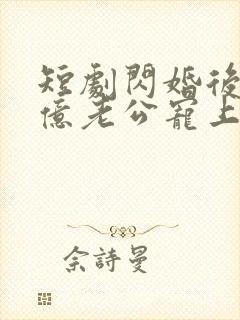 短劇閃婚後
億老公寵上
佘詩曼